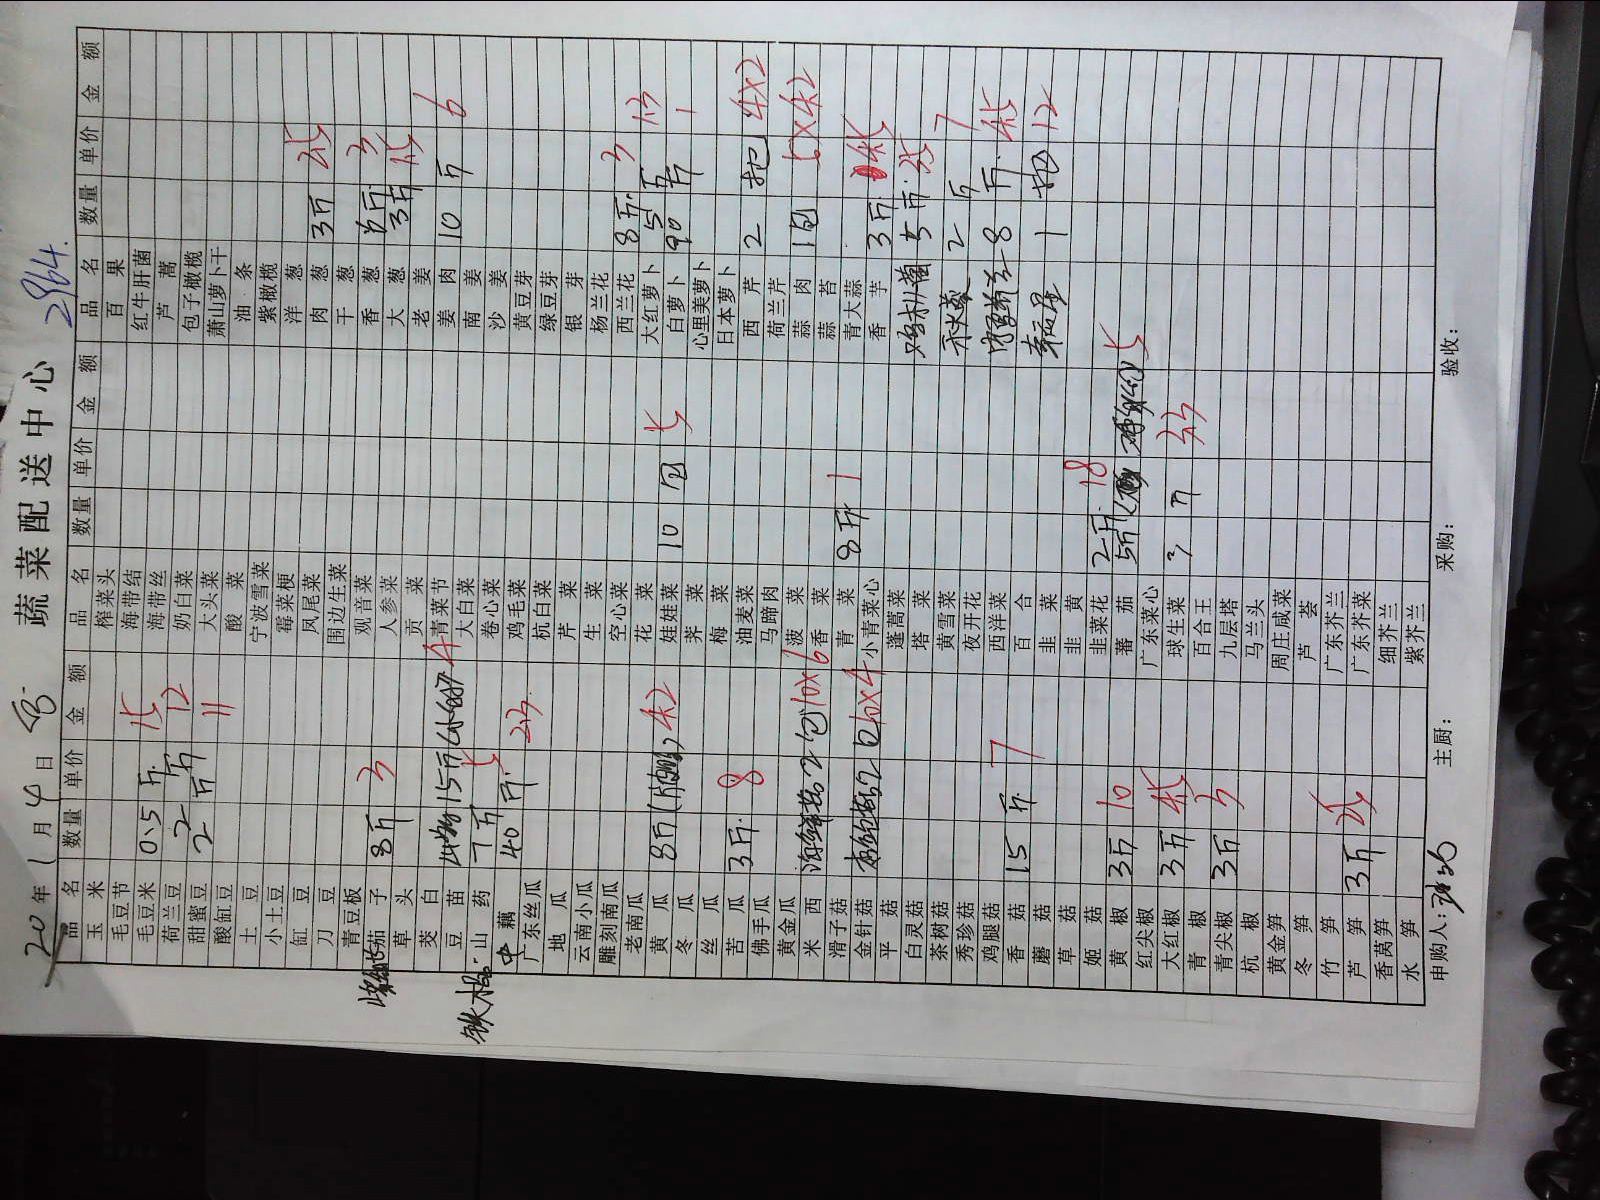 蔬菜配送中心
20 年 1 月 4 日
品名 数量 单价 金额 品名 数量 单价 金额 品名 数量 单价 金额
玉米 榨菜头 百果
毛豆节 海带结 红牛肝菌
毛豆米 0.5 斤 15 海带丝 芦蒿
荷兰豆 2 斤 12 奶白菜 包子橄榄
甜蜜豆 2 斤 11 大头菜 萧山萝卜干
酸缸豆 酸菜 油条
土豆 宁波雪菜 紫橄榄
小土豆 霉菜梗 洋葱
缸豆 凤尾菜 肉葱 3斤 25
刀豆 围边生菜 干葱
青豆板 观音菜 香葱 斤 3
茄子 8斤 3 人参菜 大葱 3斤 15
草头 贡菜 老姜
茭白 青菜节 姜肉 10 斤 6
豆苗 大白菜 南姜
山药 7斤 5 卷心菜 沙姜
中藕 40 斤 23 鸡毛菜 黄豆芽
广东丝瓜 杭白菜 绿豆芽
地瓜 芹菜 银芽
云南小瓜 生菜 杨兰花
雕刻南瓜 空心菜 西兰花 8斤 3
老南瓜 花菜 大红萝卜 5斤 13
黄瓜 8斤 42 娃娃菜 10 包 5 白萝卜 90 斤 1
冬瓜 荠菜 心里美萝卜
丝瓜 梅菜 日本萝卜
苦瓜 3斤 8 油麦菜 西芹 2 把 4×2
佛手瓜 马蹄肉 荷兰芹
黄金瓜 菠菜 蒜肉 1包 5×42
米西 2包 10×6 香菜 蒜苔
滑子菇 青菜 8斤 1 青大蒜
金针菇 2包 10×4 小青菜心 香芋 3斤 45
平菇 蓬蒿菜 鸡枞菌 5斤 35
白灵菇 塔菜
茶树菇 黄雪菜 秋葵 2 斤 7
秀珍菇 夜开花 8 斤 45
鸡腿菇 西洋菜
香菇 15 斤 7 百合 1 12
蘑菇 韭菜
草菇 韭黄
姬菇 韭菜花 2斤 18
黄椒 3斤 10 蕃茄 5斤 5
红尖椒 广东菜心
大红椒 3斤 45 球生菜 3 斤 33
青椒 百合王
青尖椒 3斤 5 九层塔
杭椒 马兰头
黄金笋 周庄咸菜
冬笋 芦荟
竹笋 广东芥兰
芦笋 3斤 25 广东芥菜
香莴笋 细芥兰
水笋 紫芥兰
申购人: 主厨: 采购: 验收: